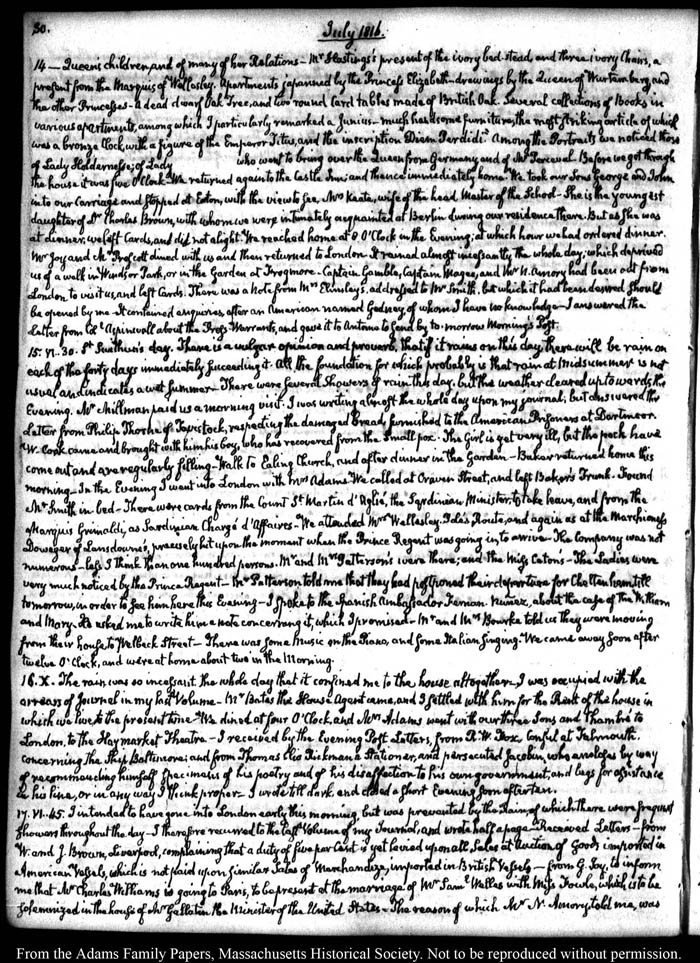 30.
July 1816.
14 — Queens children, and of many of her Relations — Mr Hastings's present of the ivory bed-stead, and three ivory Chairs, a
present from the Marquis of Wellesley. Apartments japanned by the Princess Elizabeth — drawings by the Queen of Wurtemberg, and
the other Princesses — a dead dwarf Oak Tree, and two round Card tables made of British Oak. Several collections of Books in
various apartments, among which I particularly remarked a Junius — much handsome furniture, the most striking article of which
was a bronze Clock, with a figure of the Emperor Titus, and the inscription Diem Perdidi. Among the Portraits we noticed those
of Lady Holdernesse; of Lady who went to bring over the Queen from Germany, and of Mr Perceval. Before we got through
the house it was five O'Clock. We returned again to the Castle Inn; and thence immediately home. We took our Sons George and John
into our Carriage and stopped at Eton, with the view to see, Mrs Keate, wife of the head Master of the School — She is the youngest
daughter of Dr Charles Brown, with whom we were intimately acquainted at Berlin during our residence there. But as she was
at dinner, we left Cards, and did not alight. We reached home at 8 O'Clock in the Evening; at which hour we had ordered dinner.
Mr Joy and Mr Prescott dined with us and then returned to London. It rained almost incessantly the whole day; which deprived
us of a walk in Windsor Park, or in the Garden at Frogmore. Captain Gamble, Captain Magee, and Mr N. Amory had been out from
London, to visit us, and left Cards. There was a Note from Mrs Elmsley's, addressed to Mr Smith, but which it had been desired should
be opened by me. It contained enquiries, after an American named Godney of whom I have no knowledge — I answered the
Letter from Col. Aspinwall about the Prize Warrants, and gave it to Antoine to send by to-morrow Morning's Post.
15. VI.30. St Swithin's day. There is a vulgar opinion and proverb, that if it rains on this day, there will be rain on
each of the forty days immediately succeeding it. All the foundation for which probably is that rain at Midsummer is not
usual and indicates a wet Summer. There were several Showers of rain this day, but the weather cleared up towards the
Evening. Mr Millman paid us a morning visit. I was writing almost the whole day upon my journal, but answered the
Letter from Philip Thorne of Tavistock, respecting the damaged Bread furnished to the American Prisoners at Dartmoor.
W. Cook came and brought with him his boy, who has recovered from the Small pox. The Girl is yet very ill, but the pock have
come out and are regularly filling. Walk to Ealing Church, and after dinner in the Garden — Baker returned home this
morning. In the Evening I went into London with Mrs Adams. We called at Craven Street, and left Baker's Trunk. Found
Mr Smith in bed. There were cards from the Count St Martin d'Aglié, the Sardinian Minister, to take leave, and from the
Marquis Grimaldi, as Sardinian Chargé d'Affaires. We attended Mrs Wellesley Pole's Route, and again as at the Marchioness
Dowager of Lansdowne's, precisely hit upon the moment when the Prince Regent was going in, to arrive. The Company was not
numerous — less I think than one hundred persons. Mr and Mrs Patterson's were there; and the Miss Caton's — The Ladies were
very much noticed by the Prince Regent — Mr Patterson told me that they had postponed their departure for Cheltenham till
tomorrow, in order to see him here this Evening — I spoke to the Spanish Ambassador Fernan Nuñez, about the case of the William
and Mary. He asked me to write him a note concerning it, which I promised — Mr and Mrs Bourke told us they were moving
from their house, to Welbeck Street — There was some Music on the Piano, and some Italian singing. We came away soon after
twelve O'Clock, and were at home about two in the Morning.
16. X. The rain was so incessant the whole day that it confined me to the house altogether. I was occupied with the
arrears of Journal in my last Volume — Mr Bates the House Agent came, and I settled with him for the Rent of the house in
which we live to the present time. We dined at four O'Clock, and Mrs Adams went with our three Sons and to
London, to the Haymarket Theatre — I received by the Evening Post Letters, from R. W. Fox, Consul at Falmouth.
concerning the Ship Baltimore; and from Thomas Clio Rickman a Stationer, and persecuted Jacobin, who encloses by way
of recommending himself Specimens of his poetry and of his disaffection to his own government, and begs for assistance
in his line, or in any way I think proper. I wrote till dark and closed a short Evening soon after ten.
17. VI.45. I intended to have gone into London early this morning, but was prevented by the Rain, of which there were frequent
Showers throughout the day — I therefore recurred to the last Volume of my Journal, and wrote half a page. Received Letters — from
W. and J. Brown, Liverpool, complaining that a duty of five per Cent is yet levied upon all Sales at Auction of Goods imported in
American Vessels, which is not paid upon similar Sales of Merchandize, imported in British Vessels — from G. Joy, to inform
me that Mr Charles Williams is going to Paris, to be present at the marriage of Mr Saml Welles with Miss Fowle, which is to be
solemnized in the house of Mr Gallatin the Minister of the United States — The reason of which Mr N. Amory told me, was
From the Adams Family Papers, Massachusetts Historical Society. Not to be reproduced without permission.